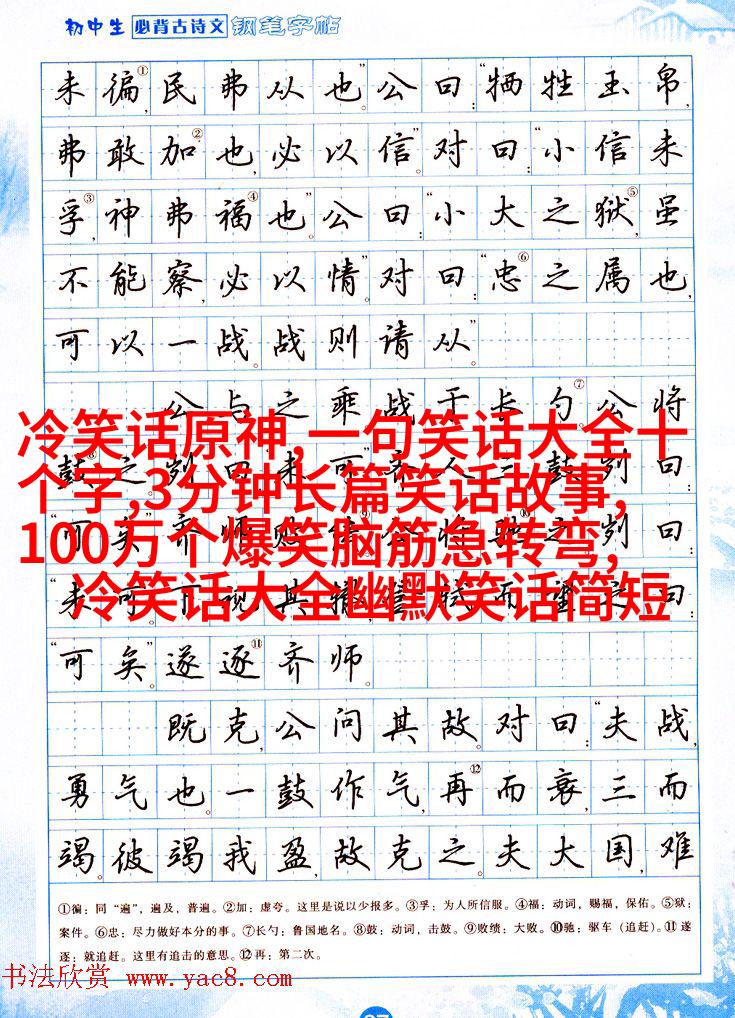 初中生 必背古诗文 钢笔字帖
未徧①，民弗从也。”公曰：“牺牲玉帛，
弗敢加②也，必以信。”对曰：“小信未
孚③，神弗福④也。”公曰：“小大之狱⑤，虽
不能察，必以情。”对曰：“忠⑥之属也，
可以一战。战则请从。”
公与之乘，战于长勺⑦。公将
鼓⑧之。刿曰：“未可。”齐人三鼓。刿曰：
“可矣。”齐师败绩。公将驰之。刿曰：
“未可。”下视其辙，登轼而望之，曰：
“可矣。”遂逐⑪齐师。
既克，公问其故。对曰：“夫战，
勇气也。一鼓作气，再⑫而衰，三而
竭。彼竭我盈，故克之。夫大国，难
冷笑话原神,一句笑话大全十
个字,3分钟长篇笑话故事,
100万个爆笑脑筋急转弯,
冷笑话大全幽默笑话简短
①徧：同“遍”，遍及，普遍。②加：虚夸。这里是说以少报多。③孚：为人所信服。④福：动词，赐福，保佑。⑤狱：
案件。⑥忠：尽力做好本分的事。⑦长勺：鲁国地名。⑧鼓：动词，击鼓。⑨败绩：大败。⑩驰：驱车（追赶）。⑪遂
逐：就追赶。这里有追击的意思。⑫再：第二次。
书法欣赏 www.yac8.com